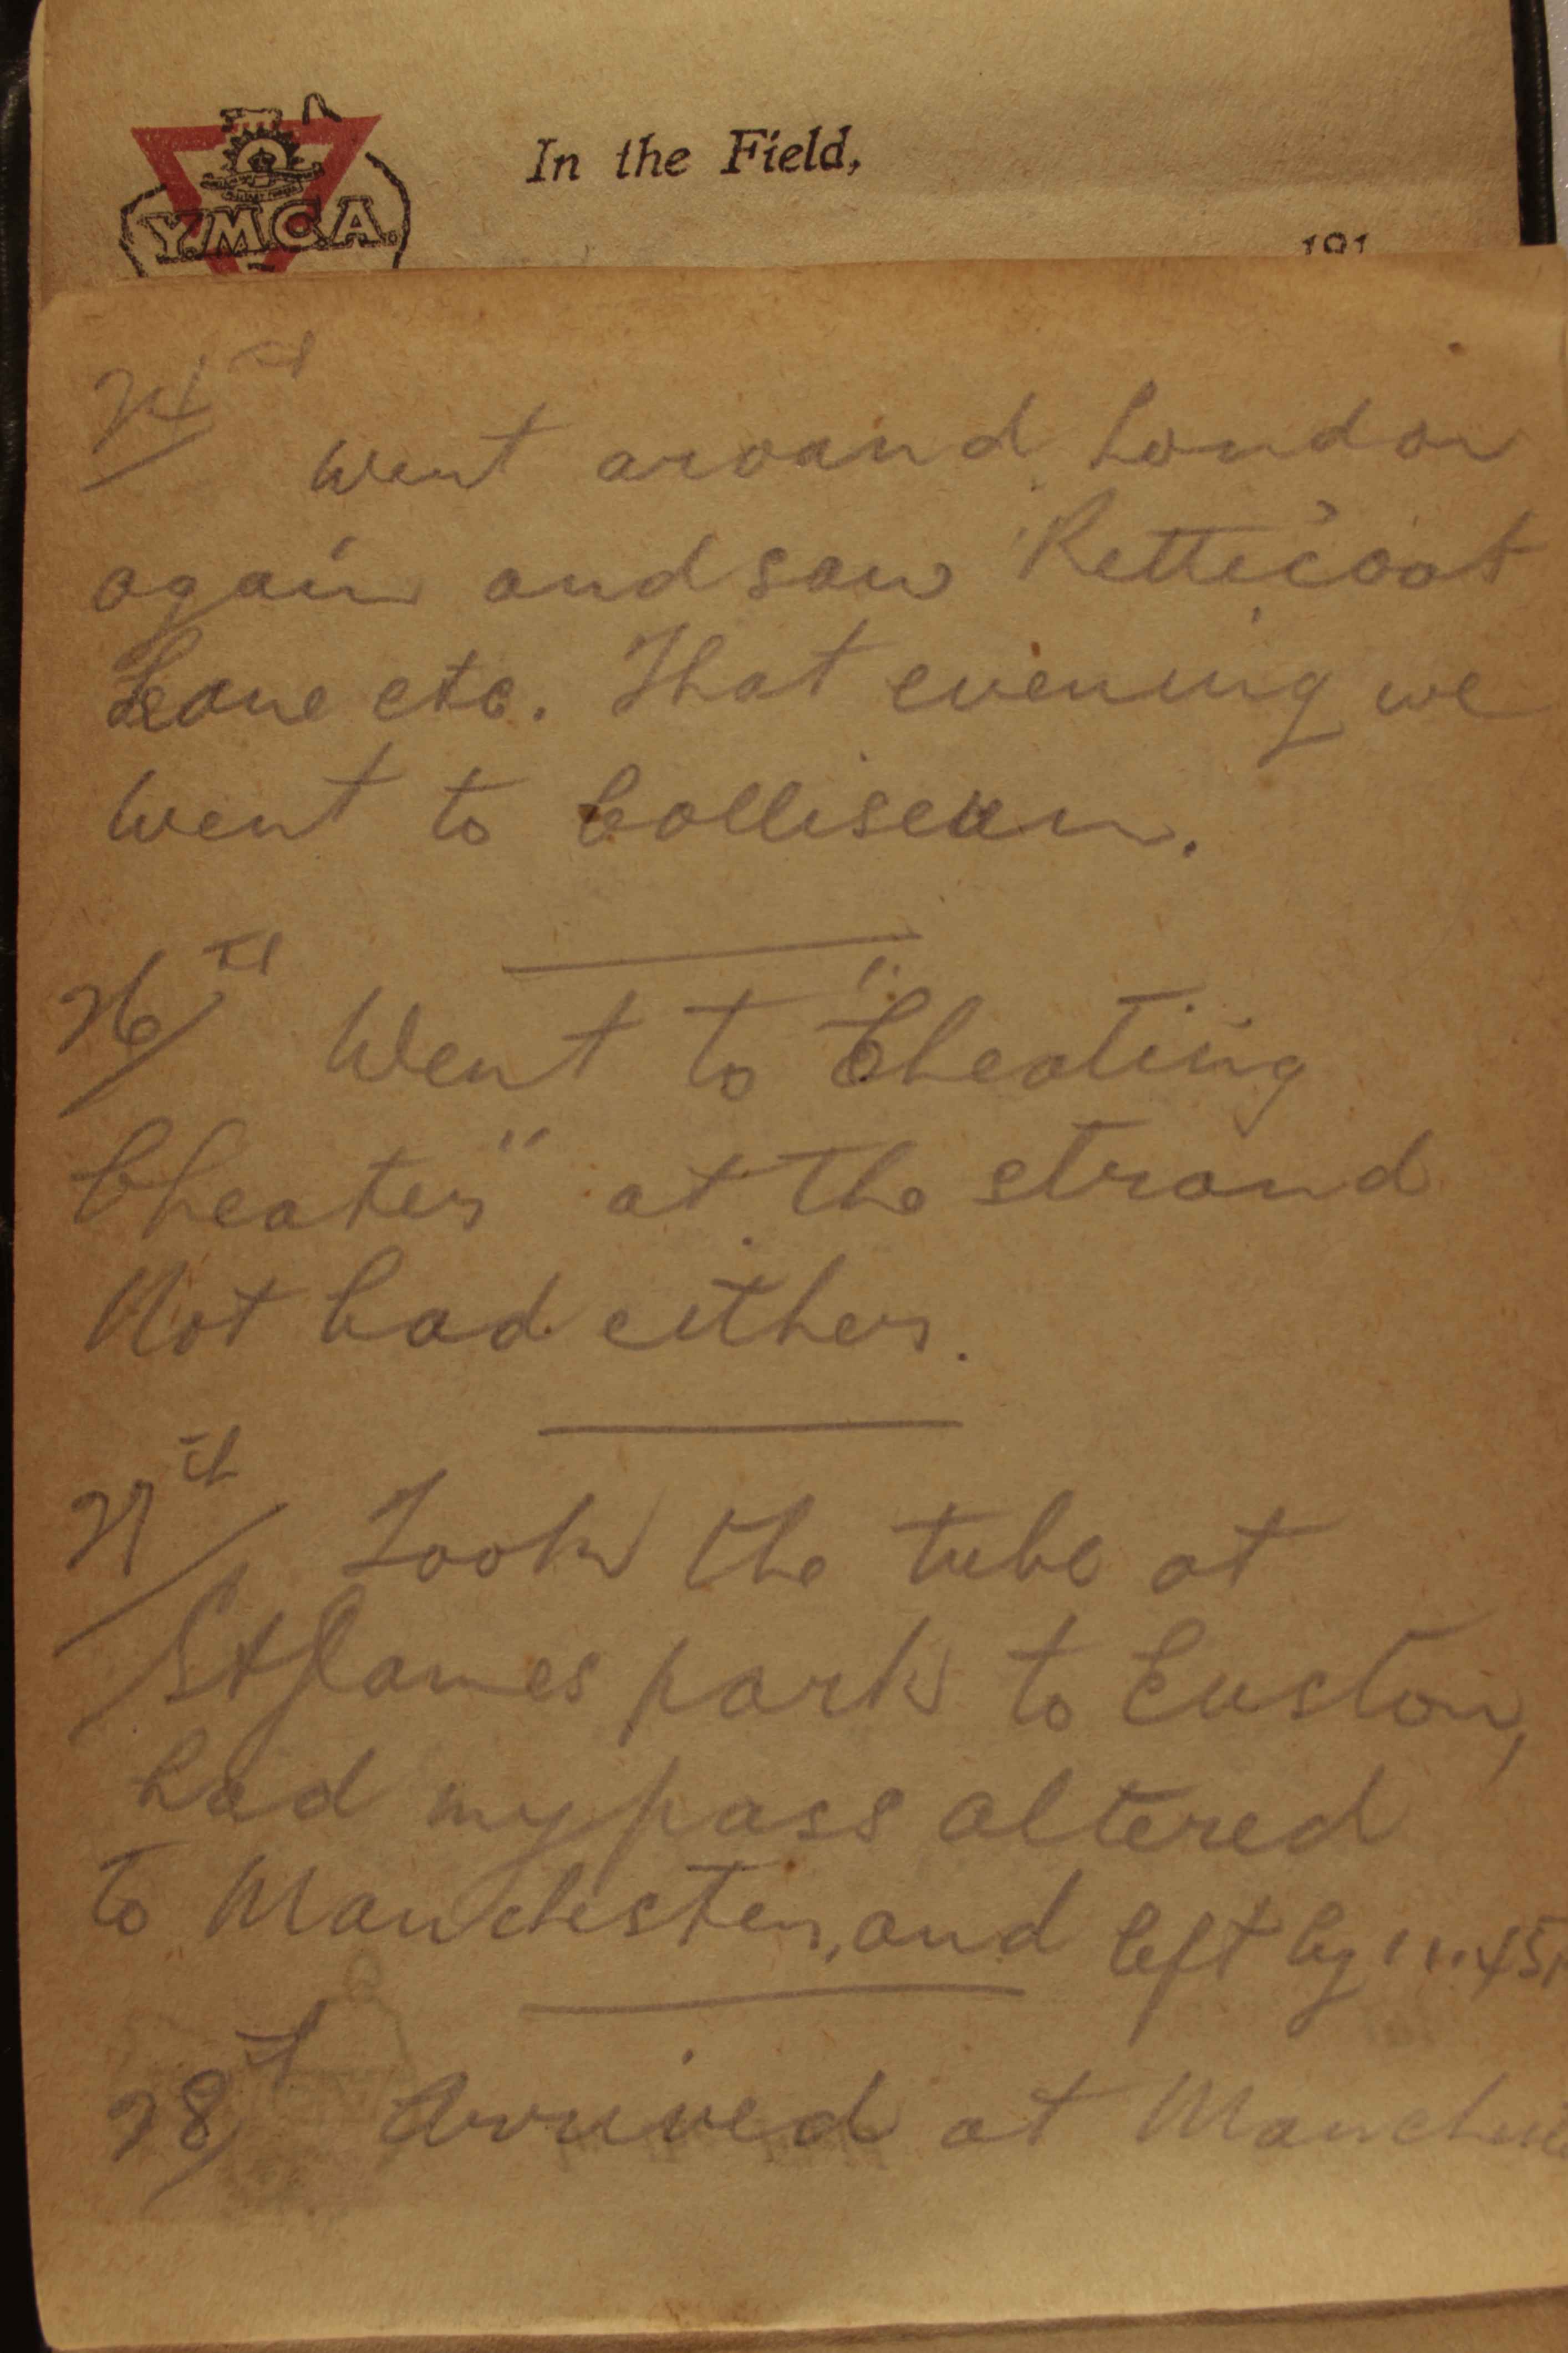 Y.M.C.A.
In the Field,
191
th
went around London
again and saw 'Petticoat
Lane etc. That evening we
went to Colliseum.
26/th Went to "Cheating
Cheaters" at the strand
Not bad either.
27/th Took the tube at
St James park to Euston,
had my pass altered
to Manchester, and left by 11.45
28/th Arrived at